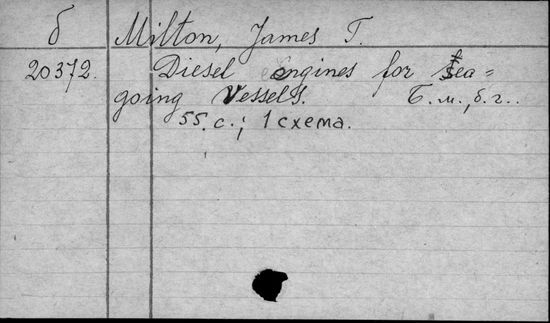 б Milton, James T.
20372. Diesel engines for sea=
going Vessels. Б.м., б.г..
55.с.; 1 схема.